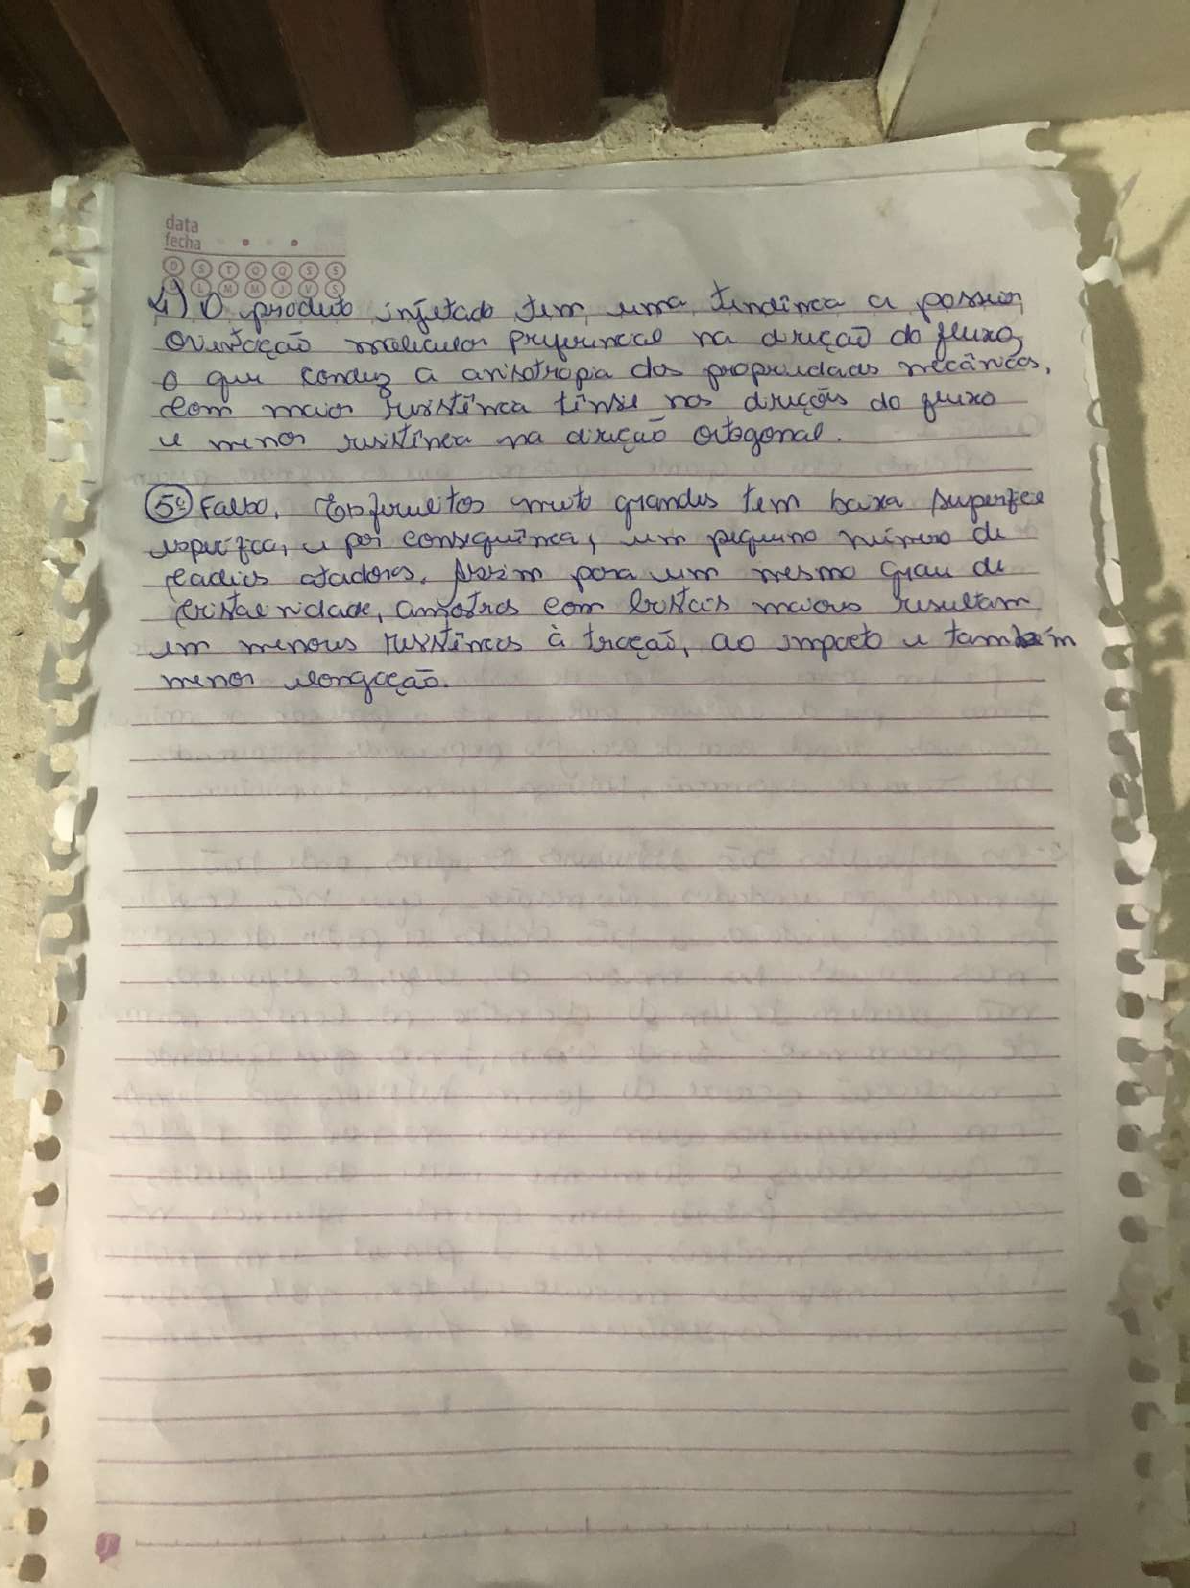 data
fecha
D S T Q Q S S
D L M M J V S
4) O produto injetado tem uma tendência a possuir
orientação molecular preferencial na direção do fluxo,
o que conduz a anisotropia das propriedades mecânicas,
com maior resistência tênsil nas direções do fluxo
e menor resistência na direção ortogonal.
5º Falso. Esferulitos muito grandes tem baixa superfície
específica, e por consequência, um pequeno número de
cadeias atadoras. Assim para um mesmo grau de
cristalinidade, amostras com cristais maiores resultam
em menores resistências à tração, ao impacto e também
menor elongação.